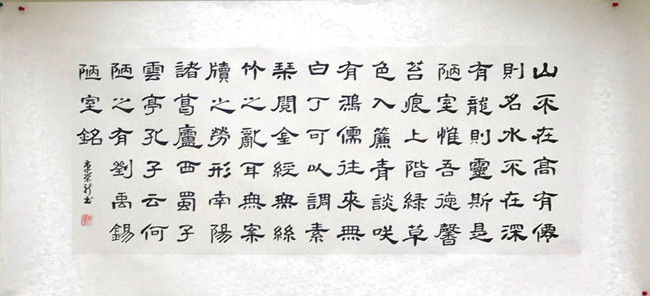 山不在高有僊
則名水不在深
有龍則靈斯是
陋室惟吾德馨
苔痕上階綠草
色入簾青談咲
有鴻儒往來無
白丁可以調素
琴閱金經無絲
竹之亂耳無案
牘之勞形南陽
諸葛廬西蜀子
雲亭孔子云何
陋之有劉禹錫
陋室銘
書